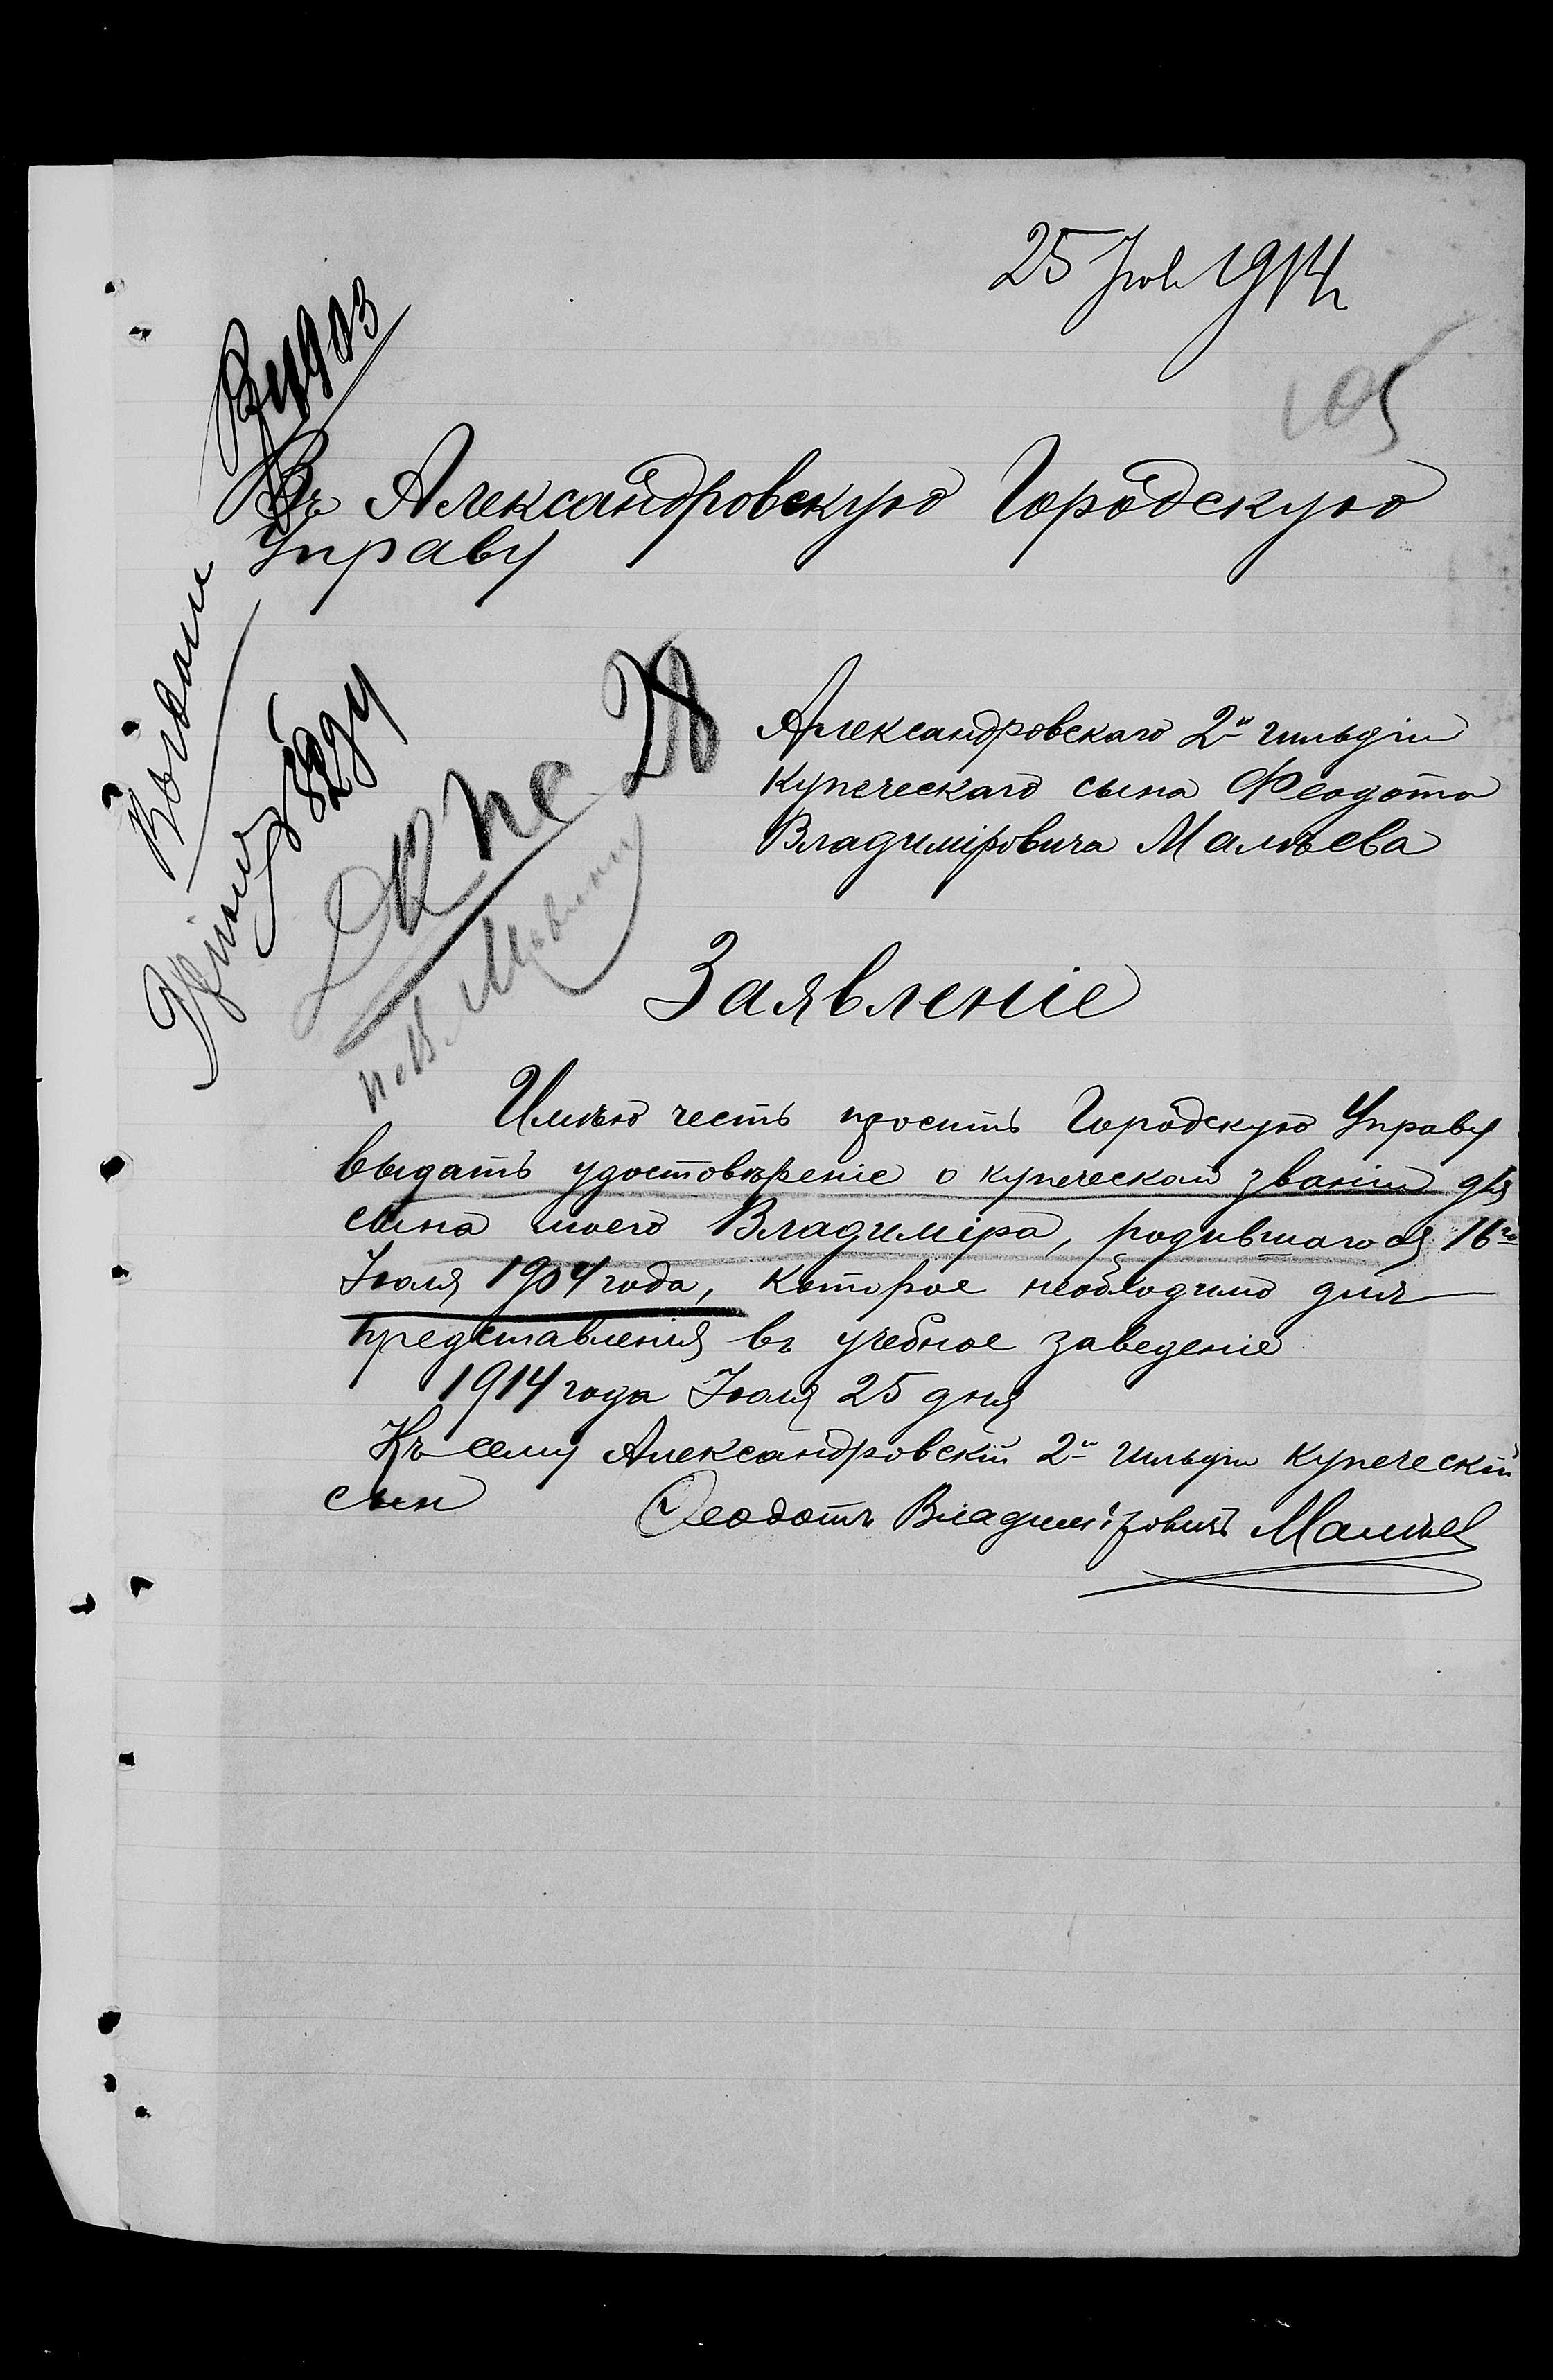 25 Іюл 1914 г
105
Въ Александровскую Городскую
Управу
28
Александровскаго 2й гильдіи
Купеческаго сына Феодота
Владиміровича Малѣева
Заявленіе
Имѣю честь просить Городскую Управу
выдать удостовѣреніе о купеческом званіи для
сына моего Владиміра, родившагося 16го
Іюля 1904 года, которое необходимо для
представленія въ учебное заведеніе
1914 года Іюля 25 дня
Къ сему Александровскій 2й гильдіи купеческій
сын Феодотъ Владиміровичъ Малѣев